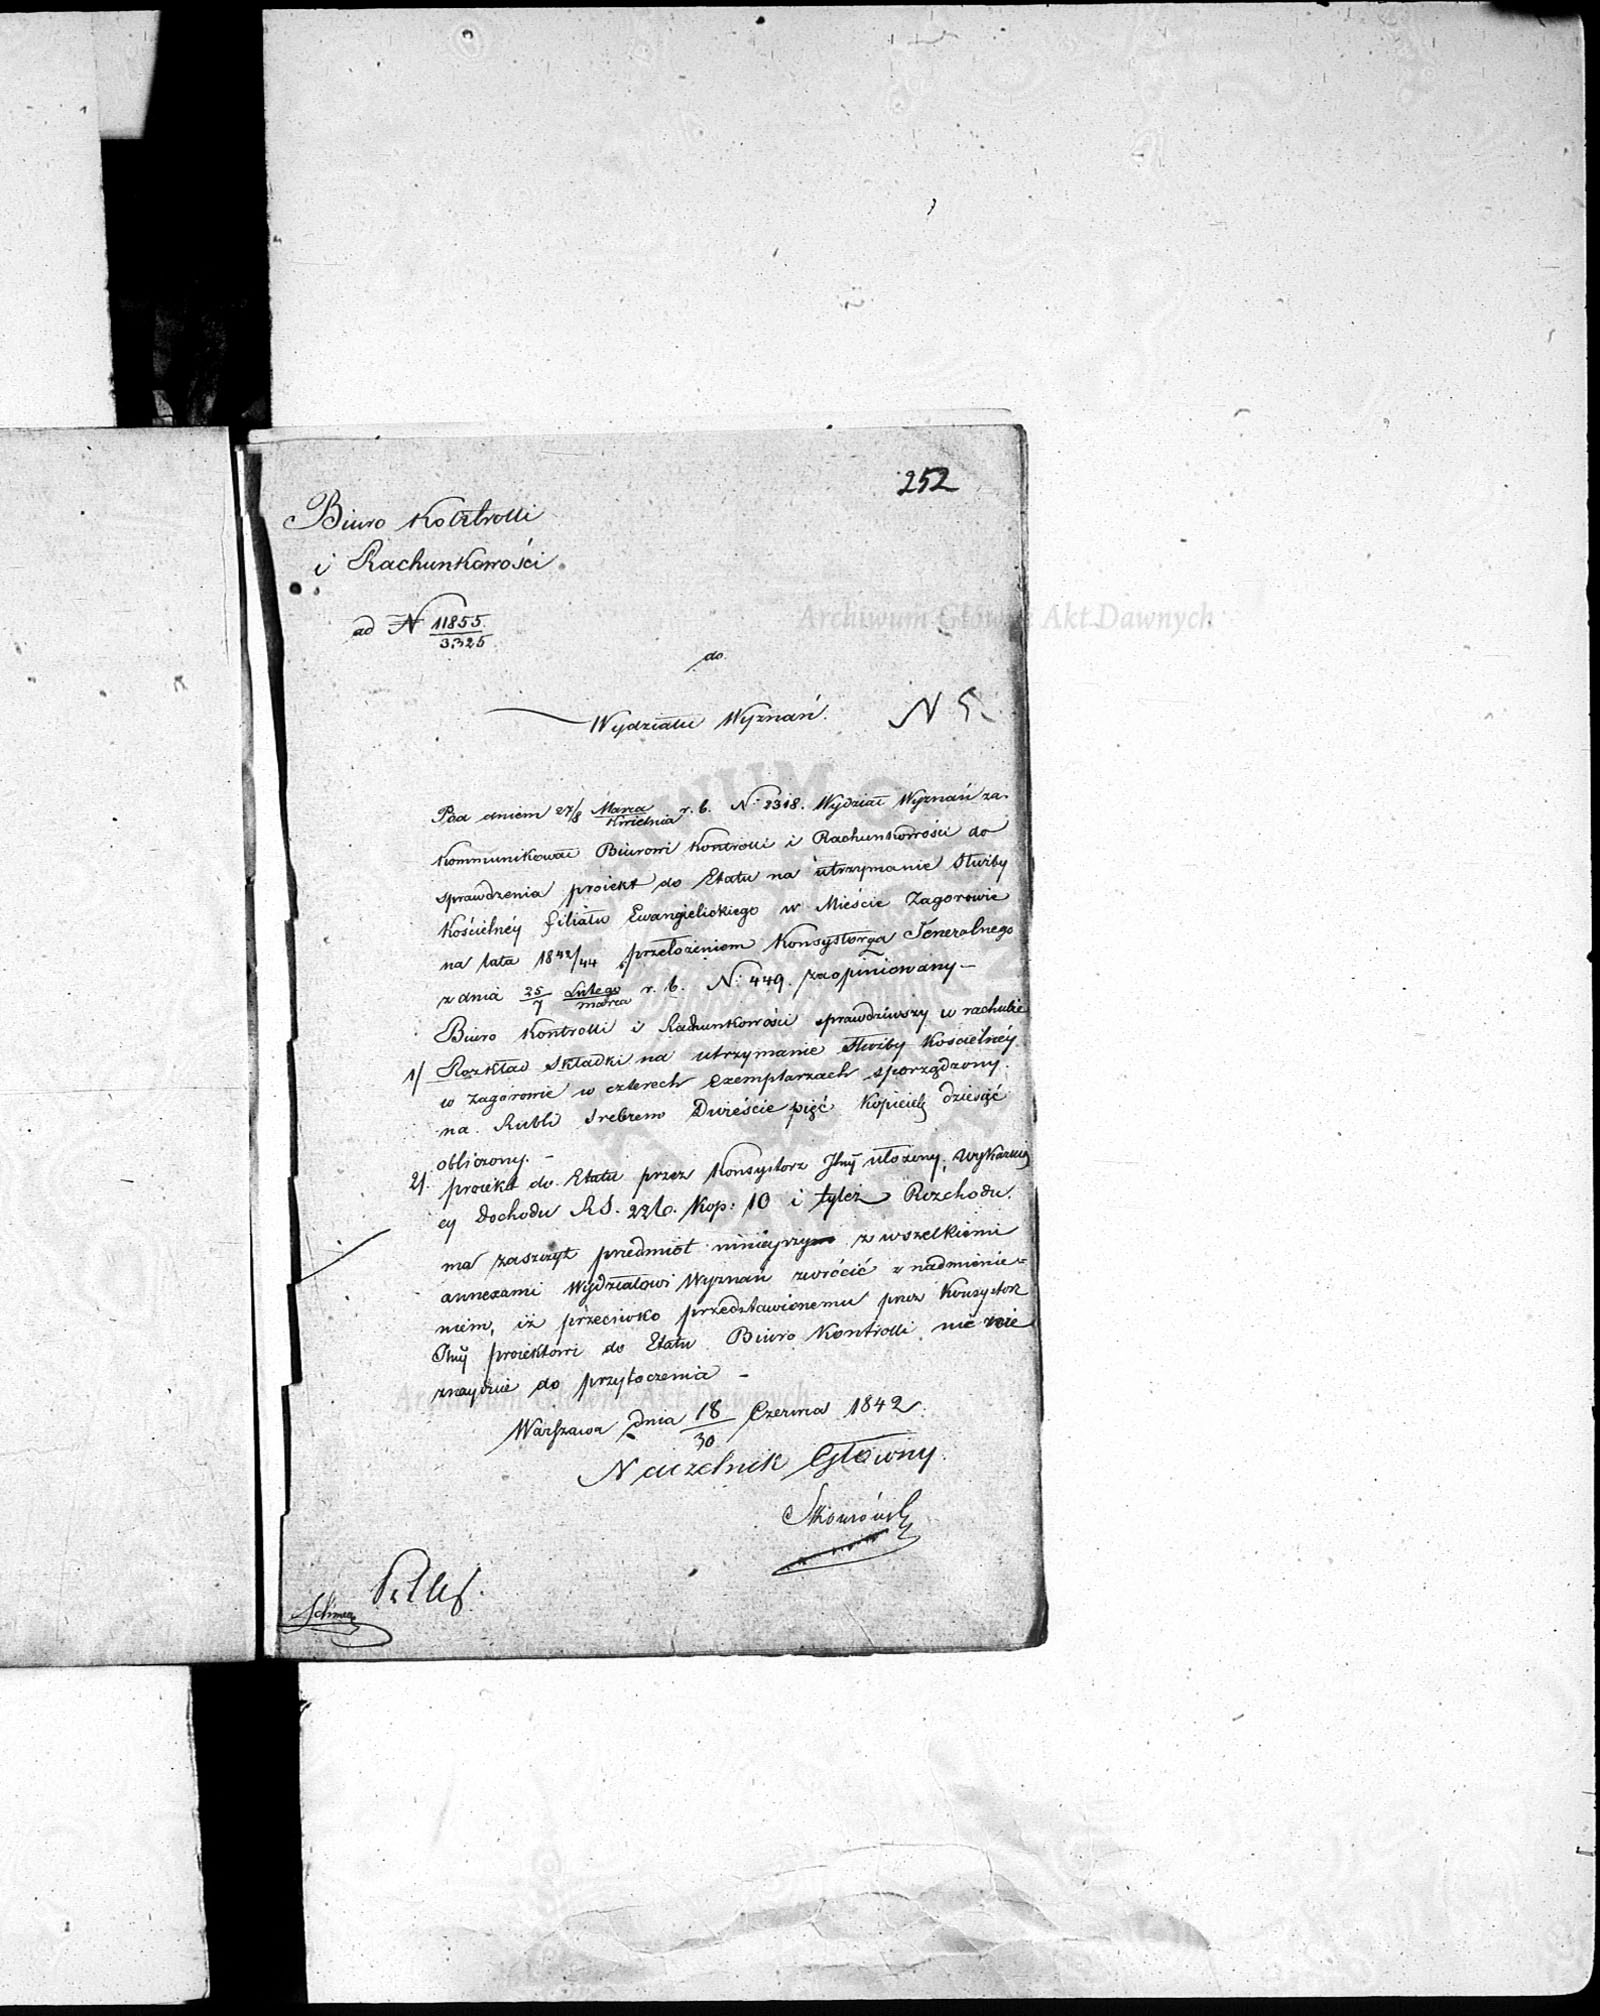 252
Biuro Kontrolli
i Rachunkowości
ad N 11855/3325
do
Wydziału Wyznań.
N 5.
Pod dniem 27/8 Marca/Kwietnia r. b. N: 2318. Wydział Wyznań za-
kommunikował Biurowi Kontrolli i Rachunkowości do
sprawdzenia proiekt do Etatu na utrzymanie Służby
Kościelnéy filiału Ewangielickiego w Mieście Zagorowie
na lata 1842/44 przełożeniem Konsystorza Jeneralnego
z dnia 25/7 Lutego/marca r. b. N: 449. zaopiniowany –
Biuro Kontrolli i Rachunkowości sprawdziwszy w rachubie
1/ Rozkład Składki na utrzymanie Służby Kościelnéy
w Zagorowie w czterech Exemplarzach sporządzony.
na Rubli Srebrem Dwieście pięć Kopieiek dziesięć
obliczony. –
2/. proiekt do Etatu przez Konsystorz Jlny ułożony, wykazuią
cy Dochodu RS. 226. Kop: 10 i tyleż Rozchodu.
ma zaszczyt przedmiot ninieyszy z wszelkiemi
annexami Wydziałowi Wyznań zwrócić z nadmienie-
niem, iż przeciwko przedstawionemu przez Konsystorz
Jlny proiektowi do Etatu Biuro Kontrolli nic nie
znayduie do przytoczenia –
Warszawa dnia 18/30 Czerwca 1842.
Naczelnik Główny.
Archiwum Główne Akt Dawnych
Archiwum Główne Akt Dawnych